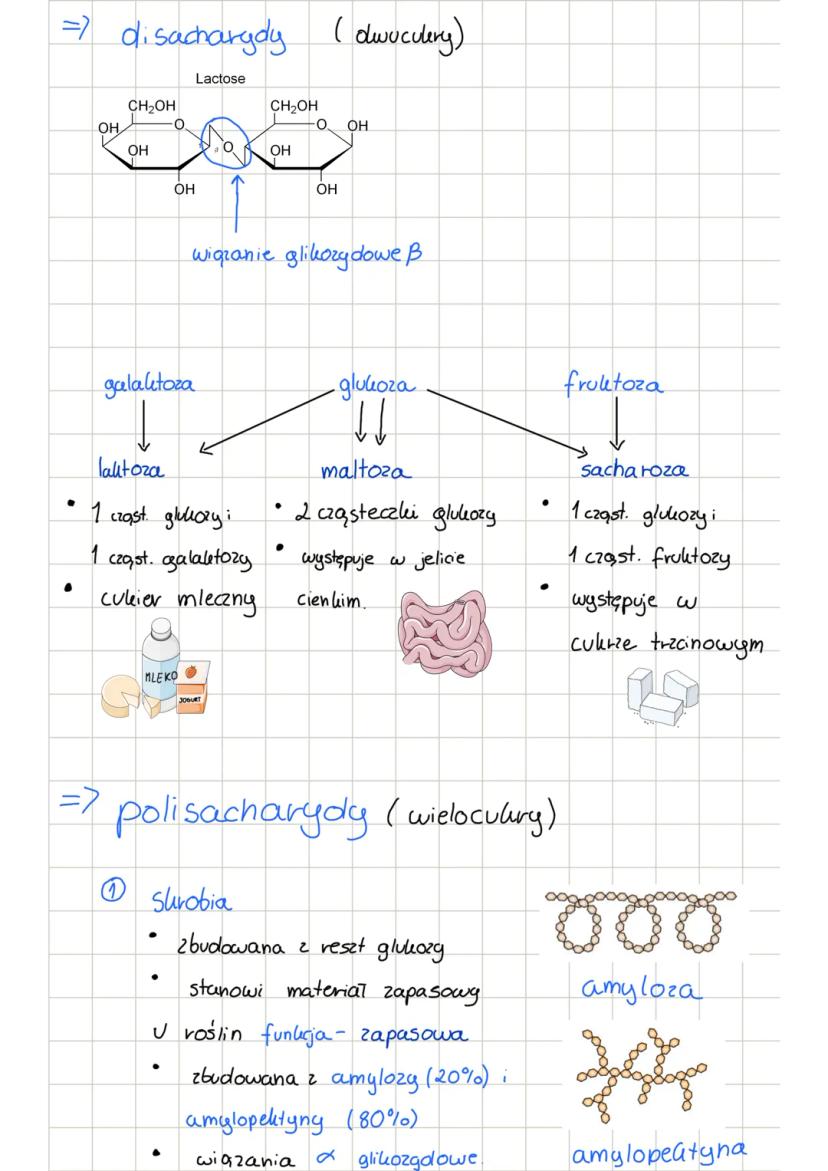 => disacharydy (dwucukry)
Lactose
CH₂OH CH₂OH
OH O O OH
OH O OH
OH OH
wiązanie glikozydowe β
galaktoza glukoza fruktoza
laktoza maltoza sacharoza
• 1 cząst. glukozy i
1 cząst. galaktozy
• cukier mleczny
MLEKO
JOGURT
• 2 cząsteczki glukozy
• występuje w jelicie
cienkim.
• 1 cząst. glukozy i
1 cząst. fruktozy
• występuje w
cukrze trzcinowym
=> polisacharydy (wielocukry)
① skrobia
• zbudowana z reszt glukozy
• stanowi materiał zapasowy
U roślin funkcja - zapasowa
• zbudowana z amylozy (20%) i
amylopektyny (80%)
• wiązania α glikozydowe.
amyloza
amylopektyna